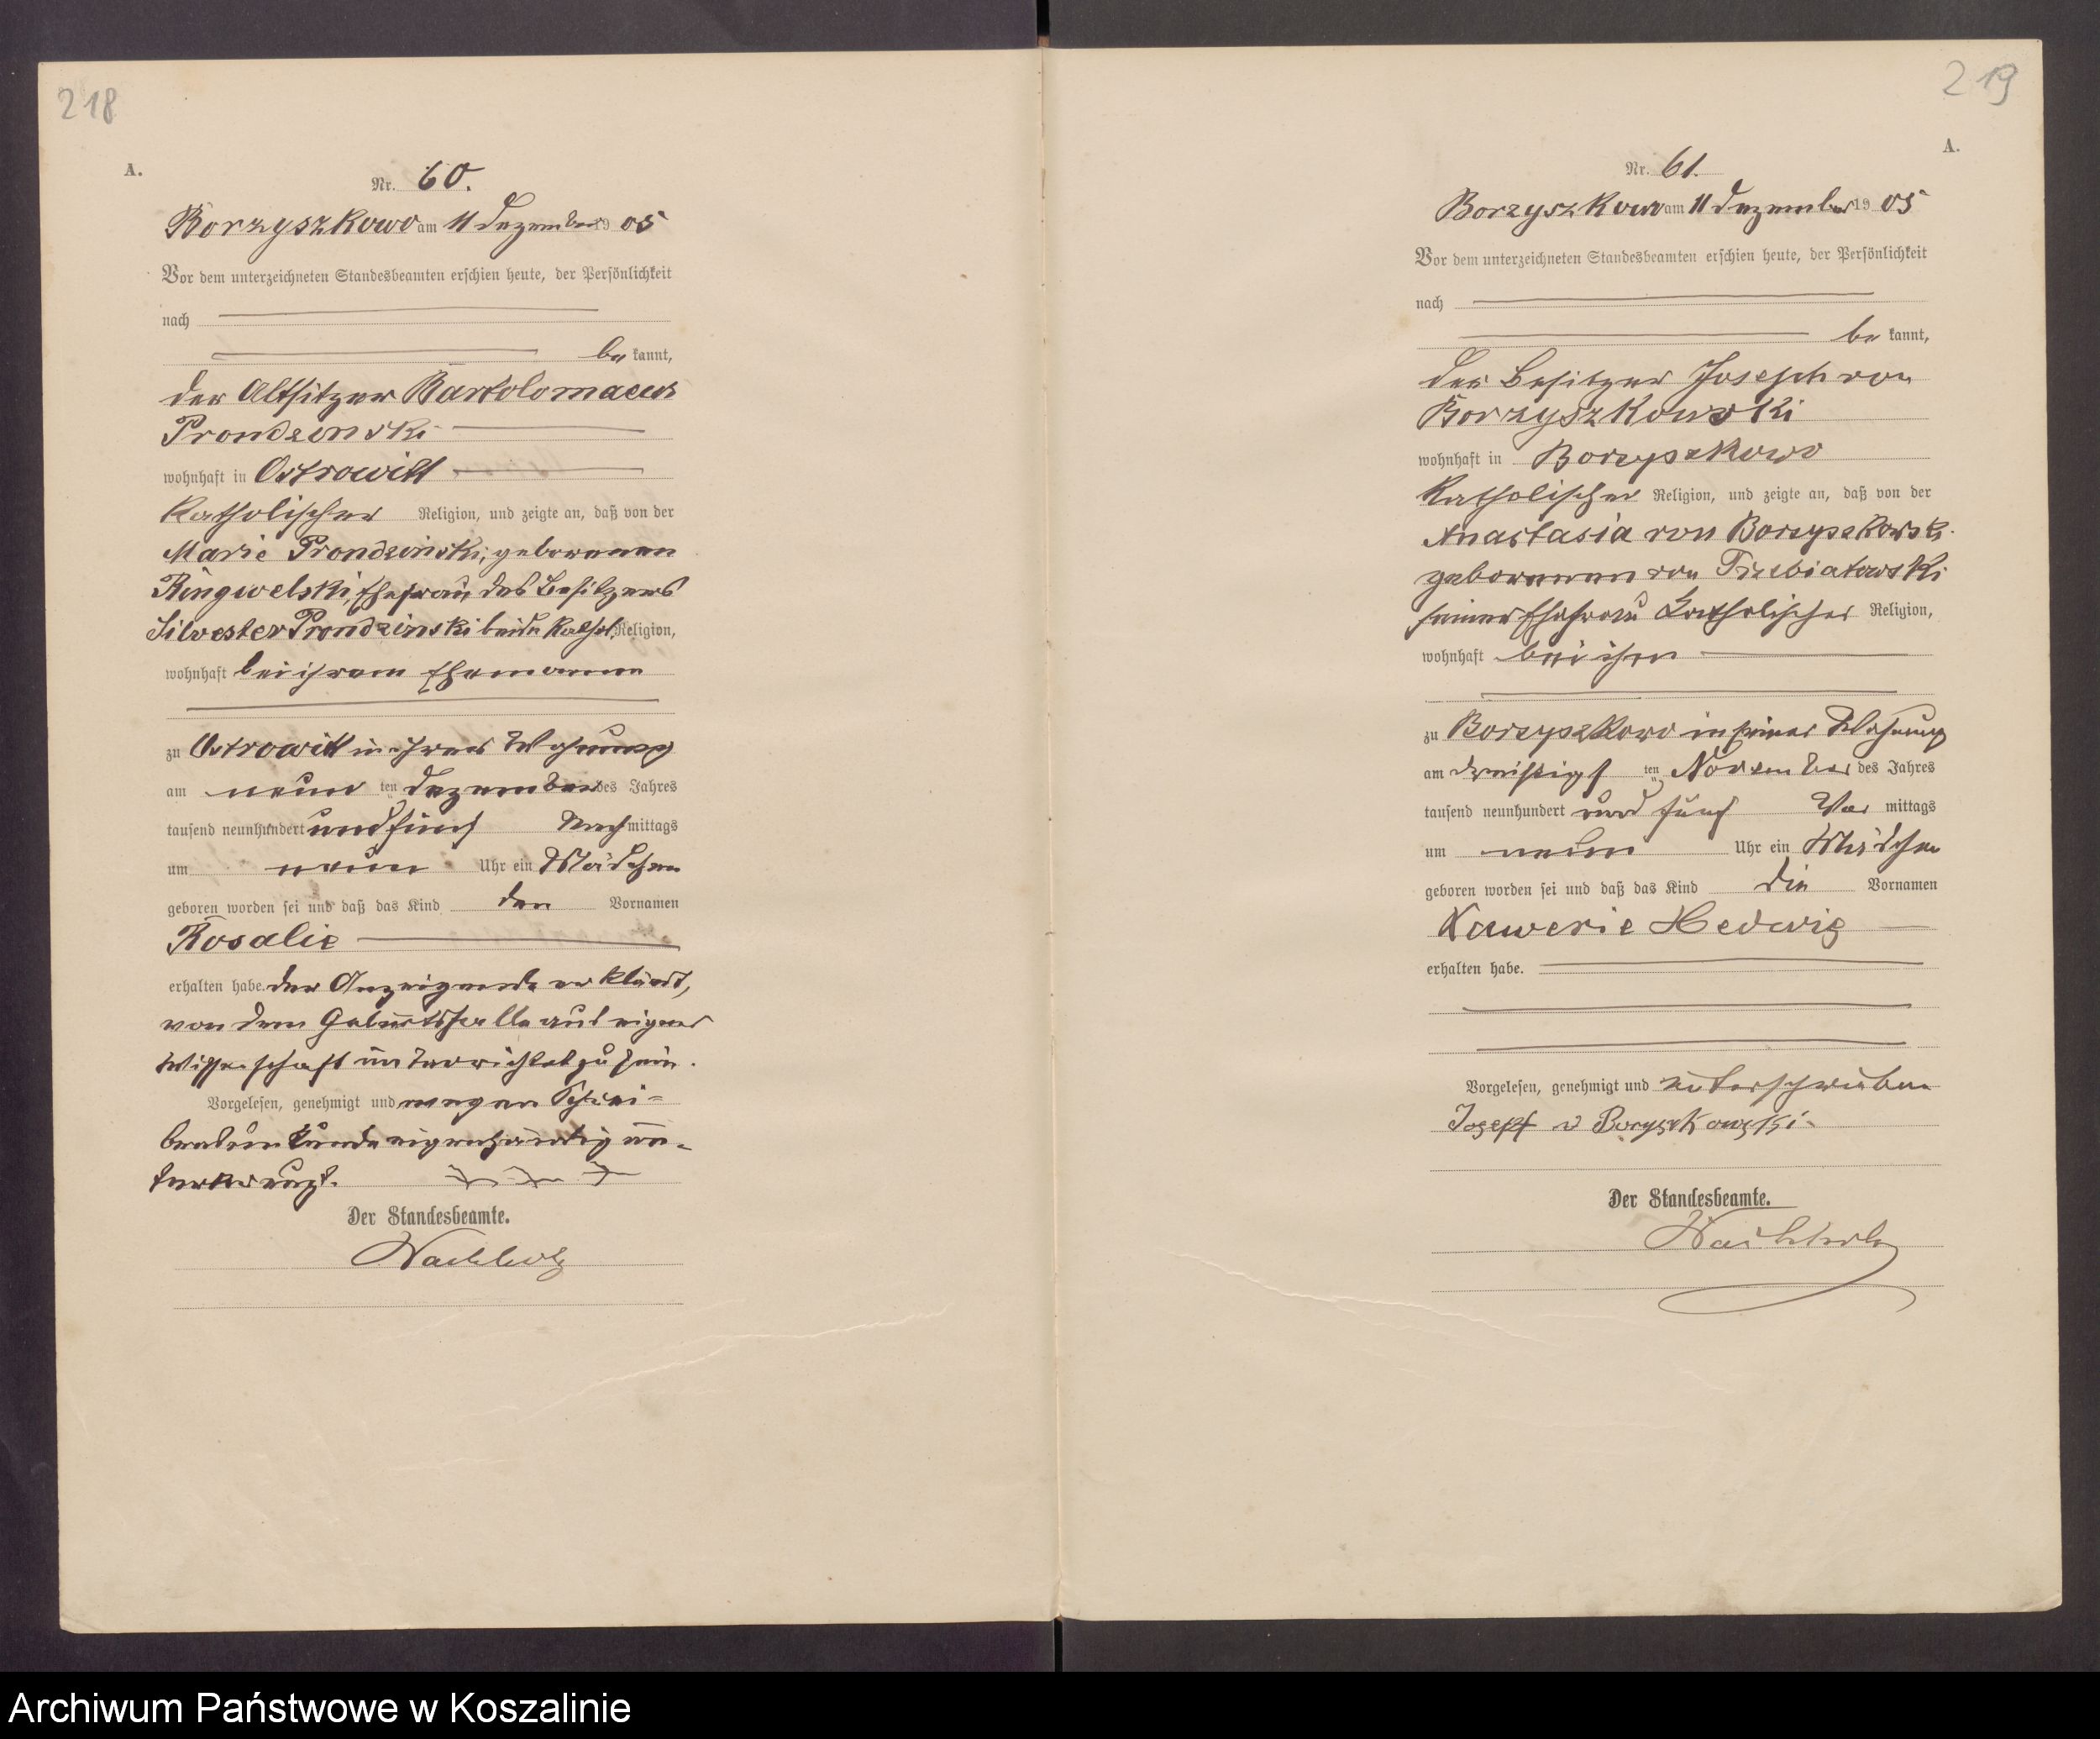 218
A.
Nr. 60.
Borzyszkowo am 11 Dezember 19 05
Vor dem unterzeichneten Standesbeamten erschien heute, der Persönlichkeit
nach
be kannt,
der Altsitzer Bartolomaeus
Prondzinski
wohnhaft in Ostrowitt
katholischer Religion, und zeigte an, daß von der
Marie Prondzinski, geborenen
Ringwelski, Ehefrau des Besitzers
Silvester Prondzinski beide kathol. Religion,
wohnhaft bei ihrem Ehemanne
zu Ostrowitt in ihrer Wohnung
am neun ten Dezember des Jahres
tausend neunhundert und fünf Nach mittags
um neun Uhr ein Mädchen
geboren worden sei und daß das Kind den Vornamen
Rosalie
erhalten habe. der Anzeigende erklärt,
von dem Geburtsfalle aus eigner
Wissenschaft unterrichtet zu sein.
Vorgelesen, genehmigt und wegen Schrei-
bensunkunde eigenhändig un-
terkreuzt. + + +
Der Standesbeamte.
219
A.
Nr. 61.
Borzyszkowo am 11 Dezember 19 05
Vor dem unterzeichneten Standesbeamten erschien heute, der Persönlichkeit
nach
be kannt,
der Besitzer Joseph von
Borzyszkowski
wohnhaft in Borzyszkowo
katholischer Religion, und zeigte an, daß von der
Anastasia von Borzyszkowski
geborenen von Trzebiatowski
seiner Ehefrau katholischer Religion,
wohnhaft bei ihm
zu Borzyszkowo in seiner Wohnung
am dreißigs ten November des Jahres
tausend neunhundert und fünf Vor mittags
um neun Uhr ein Mädchen
geboren worden sei und daß das Kind die Vornamen
Xawerie Hedwig
erhalten habe.
Vorgelesen, genehmigt und unterschrieben
Josepf v Boryszkowski
Der Standesbeamte.
Archiwum Państwowe w Koszalinie